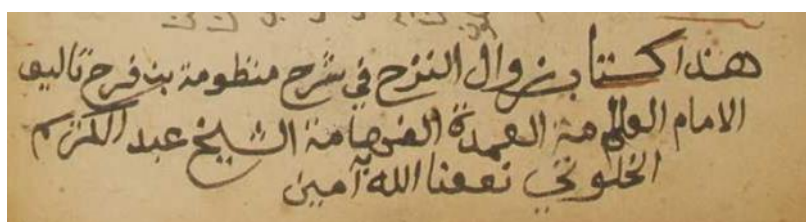 هذا كتاب زوال الترح في شرح منظومة بن فرح تاليف
الامام العالمة العمدة الفهامة الشيخ عبد الكريم
الخلوتي نفعنا الله به آمين